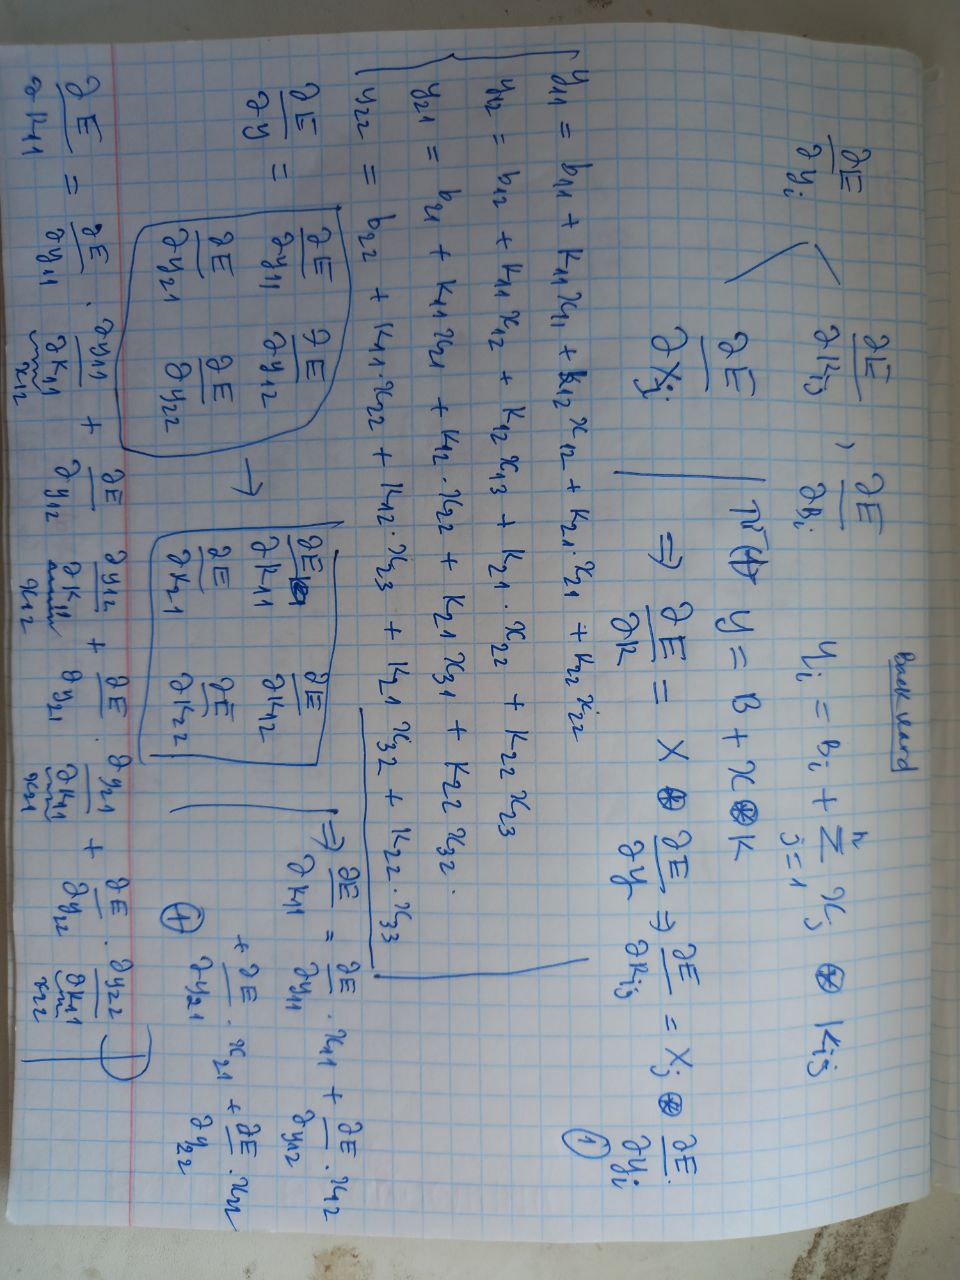 Backward
∂E/∂y_i < ∂E/∂K_ij , ∂E/∂B_i
y_i = B_i + Σ_{j=1}^{n} x_j ⊛ K_ij
∂E/∂X_j
y = B + X ⊛ K
⇒ ∂E/∂K = X ⊛ ∂E/∂y ⇒ ∂E/∂K_ij = X_j ⊛ ∂E/∂y_i
①
y11 = b11 + K11 x11 + K12 x12 + K21 · x21 + K22 x22
y12 = b12 + K11 x12 + K12 x13 + K21 · x22 + K22 x23
y21 = b21 + K11 x21 + K12 · x22 + K21 x31 + K22 x32 .
y22 = b22 + K11 · x22 + K12 · x23 + K21 x32 + K22 · x33
∂E/∂y = [ ∂E/∂y11 ∂E/∂y12
∂E/∂y21 ∂E/∂y22 ]
→ [ ∂E/∂K11 ∂E/∂K12
∂E/∂K21 ∂E/∂K22 ]
⇒ ∂E/∂K11 = ∂E/∂y11 · x11 + ∂E/∂y12 · x12
+ ∂E/∂y21 · x21 + ∂E/∂y22 · x22
∂E/∂K11 = ∂E/∂y11 · ∂y11/∂K11 + ∂E/∂y12 ∂y12/∂K11 + ∂E/∂y21 · ∂y21/∂K11 + ∂E/∂y22 · ∂y22/∂K11
x12 x12 x21 x22